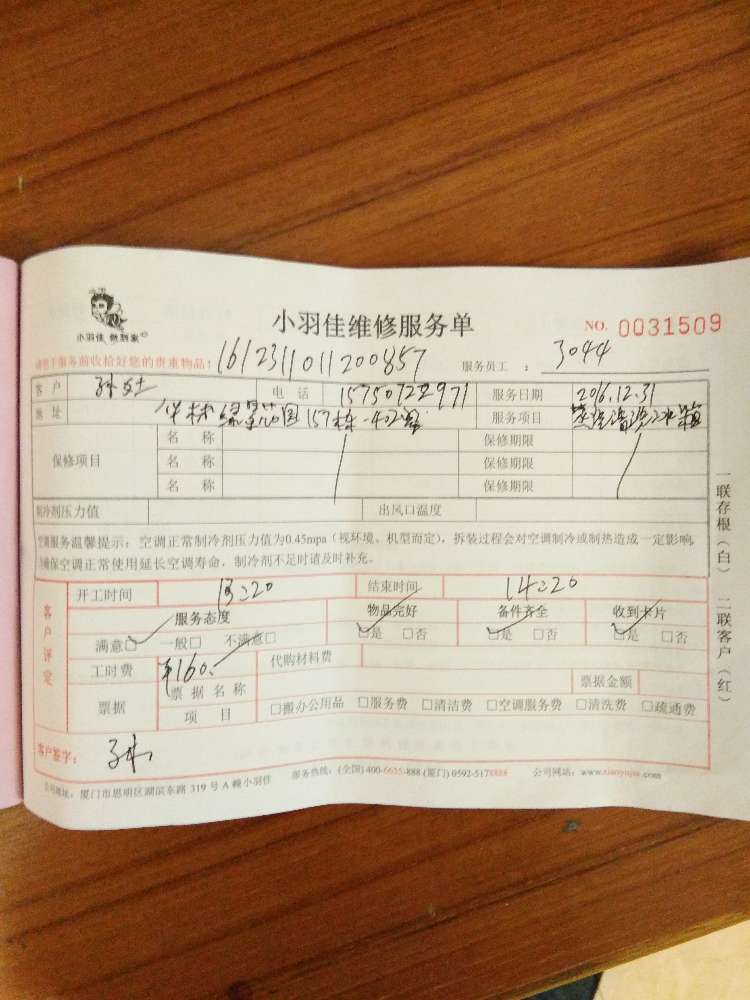 小羽佳 做到家
小羽佳维修服务单 NO. 0031509
请您于服务前收拾好您的贵重物品! 1612311011200857 服务员工 : 3044
客户 孙 电话 15750722971 服务日期 2016.12.31
地址 绿景芯园157栋-402 服务项目 蒸汽清洗冰箱
保修项目 名 称 保修期限
名 称 保修期限
名 称 保修期限
制冷剂压力值 出风口温度
空调服务温馨提示:空调正常制冷剂压力值为0.45mpa(视环境、机型而定),拆装过程会对空调制冷或制热造成一定影响,
确保空调正常使用延长空调寿命,制冷剂不足时请及时补充。
客户评定
开工时间 13:20 结束时间 14:20
服务态度 物品完好 备件齐全 收到卡片
满意☑ 一般□ 不满意□ ☑是 □否 ☑是 □否 ☑是 □否
工时费 ¥160. 代购材料费
票据 票据名称 票据金额
项 目 □搬办公用品 □服务费 □清洁费 □空调服务费 □清洗费 □疏通费
客户签字: 孙
公司地址:厦门市思明区湖滨东路 319 号 A 幢小羽佳 服务热线:(全国)400-6655-888 (厦门) 0592-5178888 公司网站:www.xiaoyujia.com
一联存根(白) 二联客户(红)